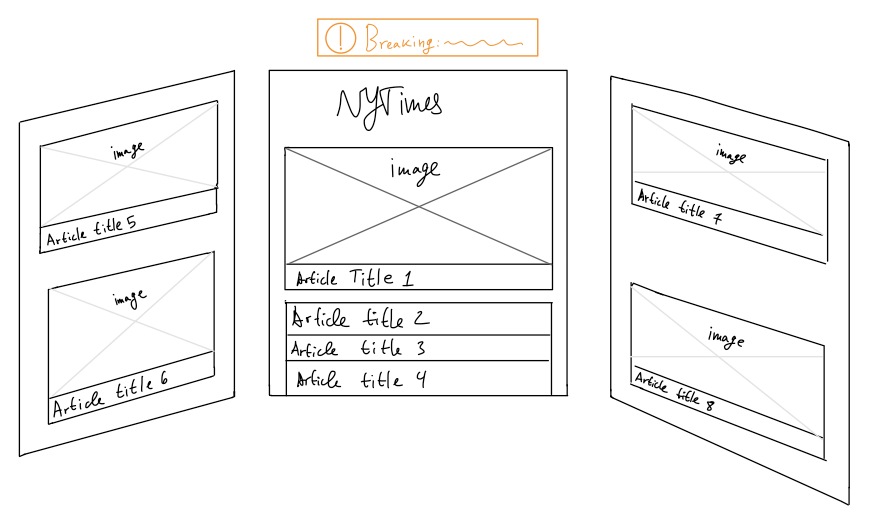 ! Breaking:
image
Article title 5
image
Article title 6
NYTimes
image
Article Title 1
Article title 2
Article title 3
Article title 4
image
Article title 7
image
Article title 8